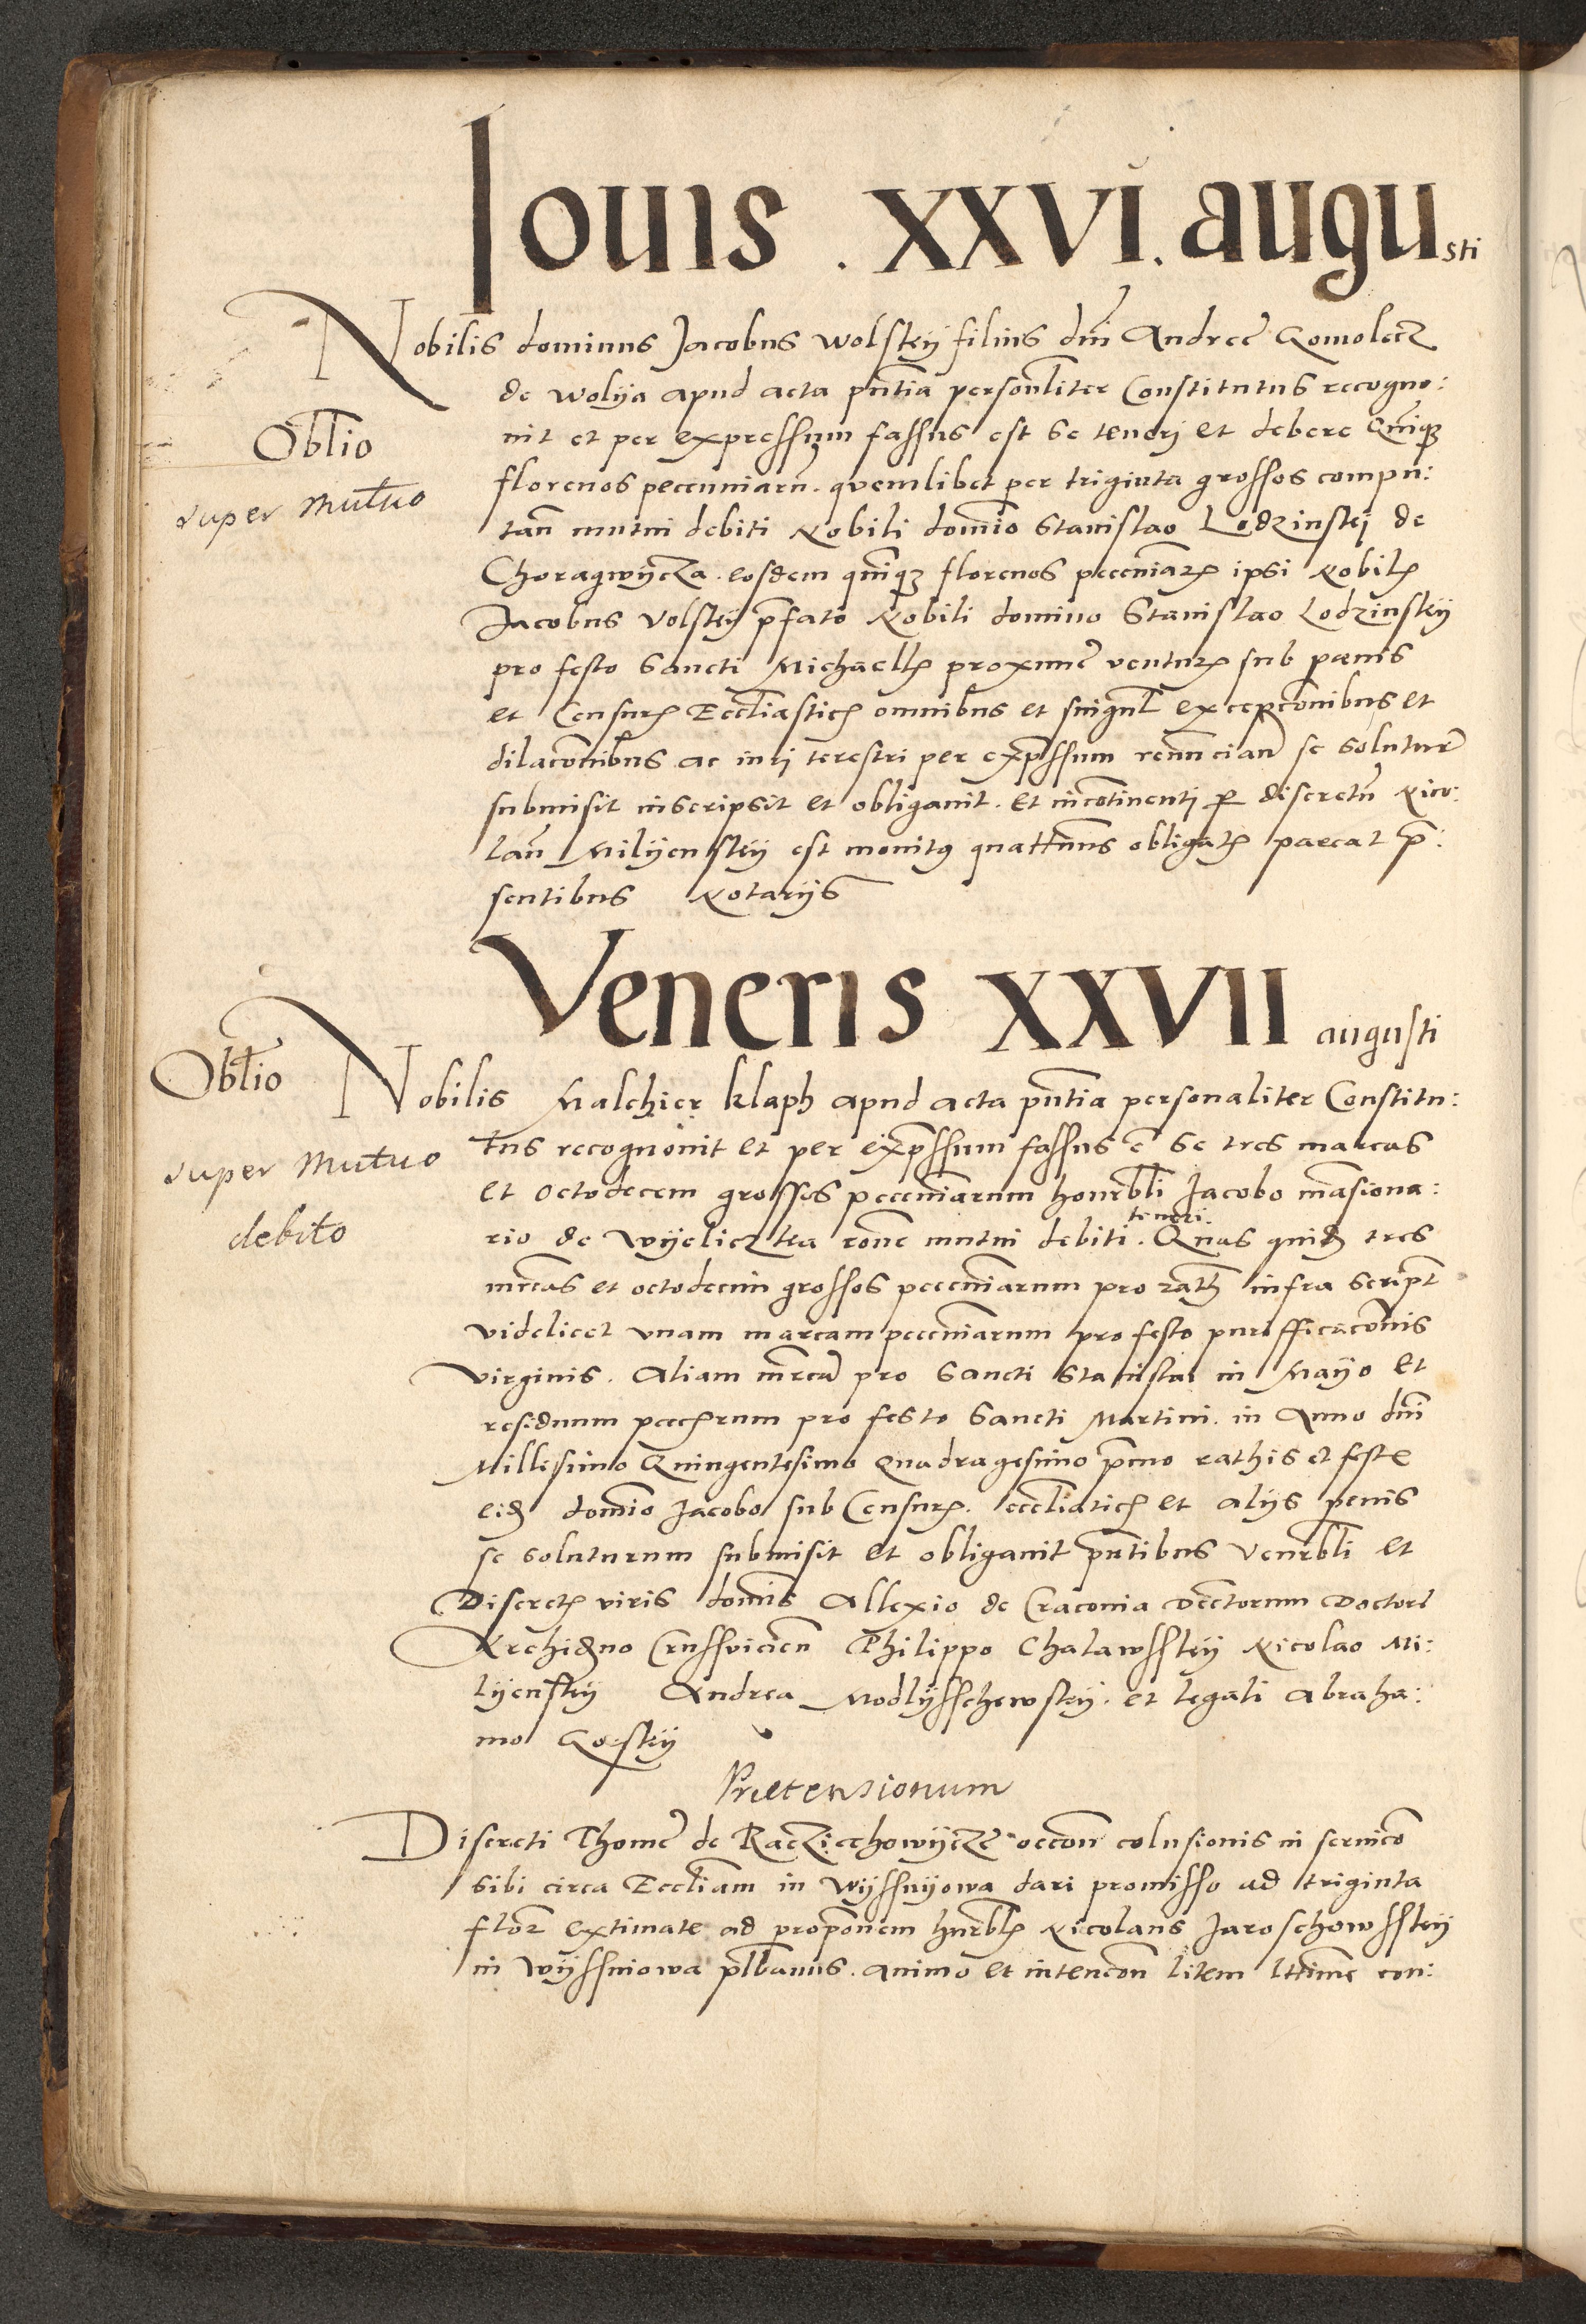 Iouis . XXVI. augusti
Nobilis dominus Jacobus Wolskÿ filius dni Andree Gomolecz
de Wolÿa apud acta pntia personliter Constitutus recogno:
Oblio
super Mutuo
uit et per expressum fassus est se tenerj et debere Quinqꝫ
florenos pecuniaru. quemlibet per triginta grossos compu:
tan mutui debiti Nobili domio Stanislao Lodzinskj de
Choragwÿcza. eosdem quinqꝫ florenos pecuniarꝫ ipsi Nobilꝫ
Jacobus Volskÿ pfato Nobili domino Stanislao Lodzinskÿ
pro festo Sancti Michaelꝫ proxime venturꝫ sub pœnis
et Censurꝫ Eccliasticꝫ omnibus et singul excepconibus et
dilaconibus ac iurj terestri per expssum renuncian se soluturu
submisit inscripsit et obligauit. et incontinentj per discretu Nico:
lau Milÿenskÿ est monitus quattenus obligatꝫ pareat p:
sentibus Notarÿs
Veneris XXVII augusti
Oblio
super Mutuo
debito
Nobilis Malchier klaph apud acta pntia personaliter Constitu:
tus recognouit et per expssum fassus e se tres marcas
et octodecem grossos pecuniarum honrbli Jacobo masiona:
teneri
rio de Wÿeliczka rone mutui debiti. Quas quidꝫ tres
mrcas et octodecim grossos pecuniarum pro rathꝫ infra script
videlicet vnam marcam pecuniarum pro festo purifficaconis
virginis. Aliam mrcam pro Sancti Stanislai in Mayo et
residuum pecuniarum pro festo Sancti Martini. in Anno dni
Millesimo Quingentesimo Quadragesimo pmo rathis et festꝫ
eidꝫ domio Jacobo sub Censurꝫ. eccliaticꝫ et alÿs penis
se soluturum submisit et obligauit pntibus Venrbli et
Discretꝫ viris domis Allexio de Cracouia Decretorum Doctore
Archidno Crussvicien Philippo Chalawsskÿ Nicolao Mi:
lÿenskÿ Andrea Modlÿsschewskÿ. et legati Abraha:
mo Gorskÿ
Prætensionum
Discreti Thome de Raczÿechowÿcze occon colusionis in seruico
sibi circa Eccliam in Wÿssnÿowa dari promisso ad triginta
flor extimate ad proponem hnrblꝫ Nicolaus Jaroschowsskÿ
in Wÿssniowa plbanus. animo et intencon litem lttime con: